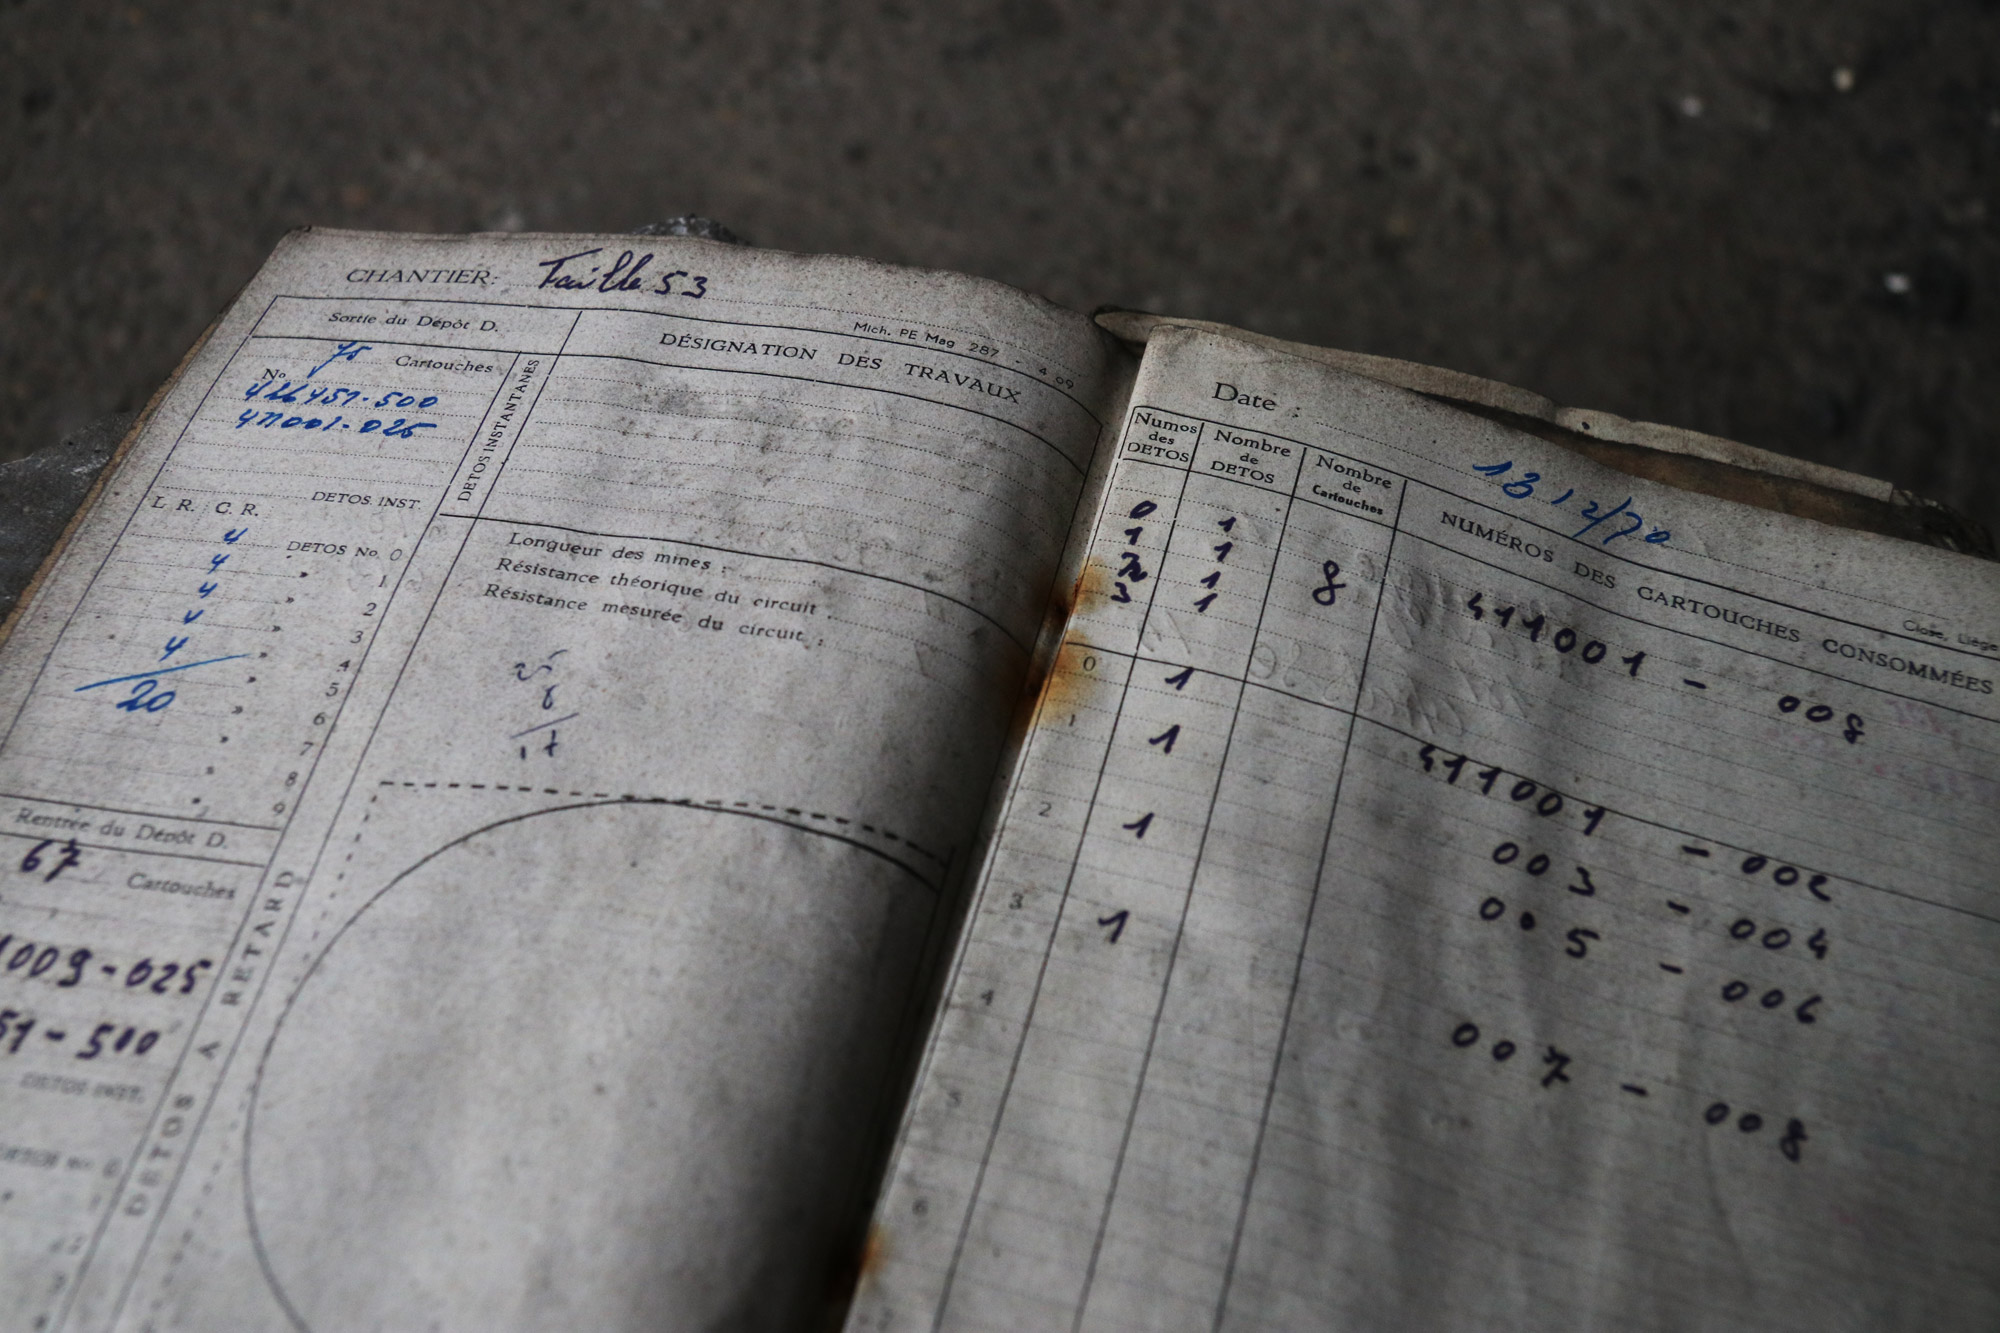 CHANTIER: Taille 53
Mich. PE Mag 287 - 4 09
Sortie du Dépôt D.
DÉSIGNATION DES TRAVAUX
75 Cartouches
No
426451-500
411001-025
DETOS INSTANTANÉS
DETOS INST.
L R. C. R.
4 DETOS No. 0
4 » 1
4 » 2
4 » 3
4 » 4
20 » 5
» 6
» 7
» 8
» 9
Longueur des mines :
Résistance théorique du circuit
Résistance mesurée du circuit :
25
8
17
Rentrée du Dépôt D.
67 Cartouches
1009-025
51-500
DETOS INST.
DETOS No. 0
DETOS A RETARD
Date : 13/2/70
Close, Liège
Numos des DETOS
Nombre de DETOS
Nombre de Cartouches
NUMÉROS DES CARTOUCHES CONSOMMÉES
0 1
1 1 8 411001 - 008
2 1
3 1
0 1 411001 - 002
1 1 003 - 004
2 1 005 - 006
3 1 007 - 008
4
5
6